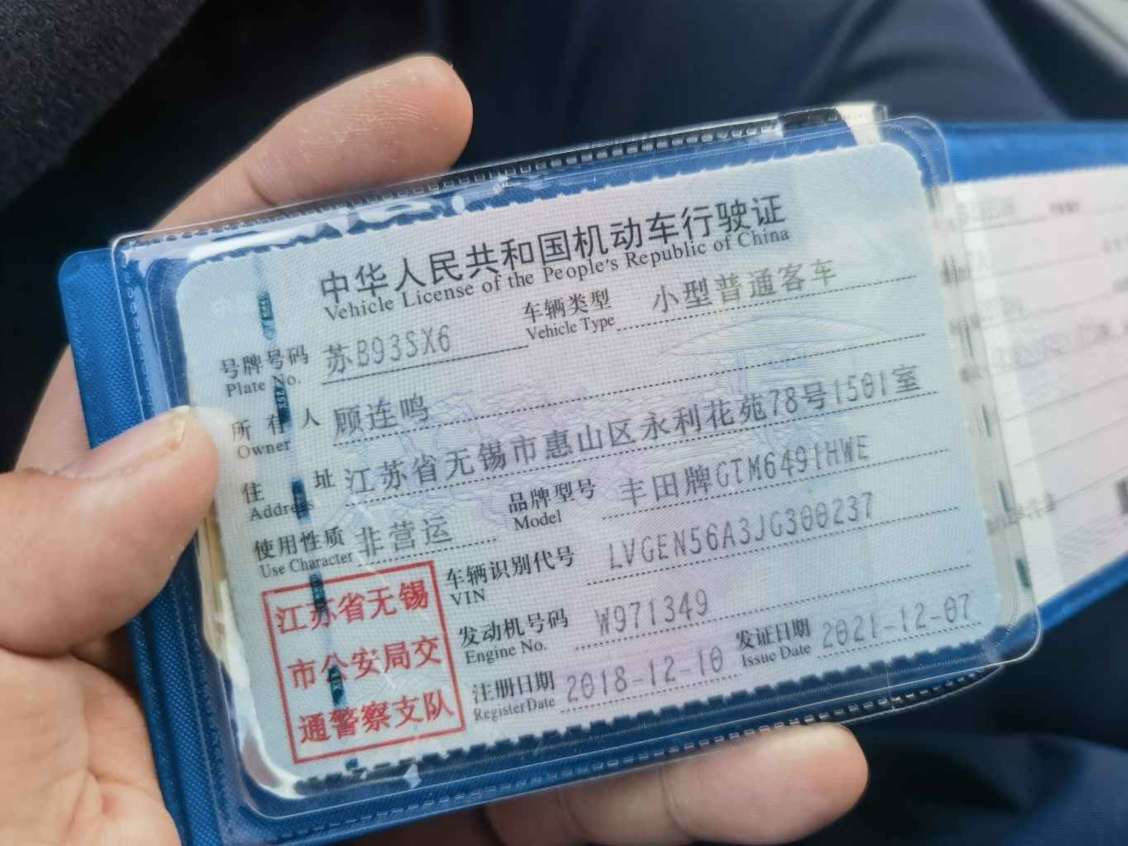 中华人民共和国机动车行驶证
Vehicle License of the People's Republic of China
号牌号码 苏B93SX6 车辆类型 小型普通客车
Plate No. Vehicle Type
所有人 顾连鸣
Owner
住址 江苏省无锡市惠山区永利花苑78号1501室
Address
使用性质 非营运 品牌型号 丰田牌GTM6491HWE
Use Character Model
车辆识别代号 LVGEN56A3JG300237
VIN
发动机号码 W971349
Engine No.
注册日期 2018-12-10 发证日期 2021-12-07
Register Date Issue Date
江苏省无锡
市公安局交
通警察支队